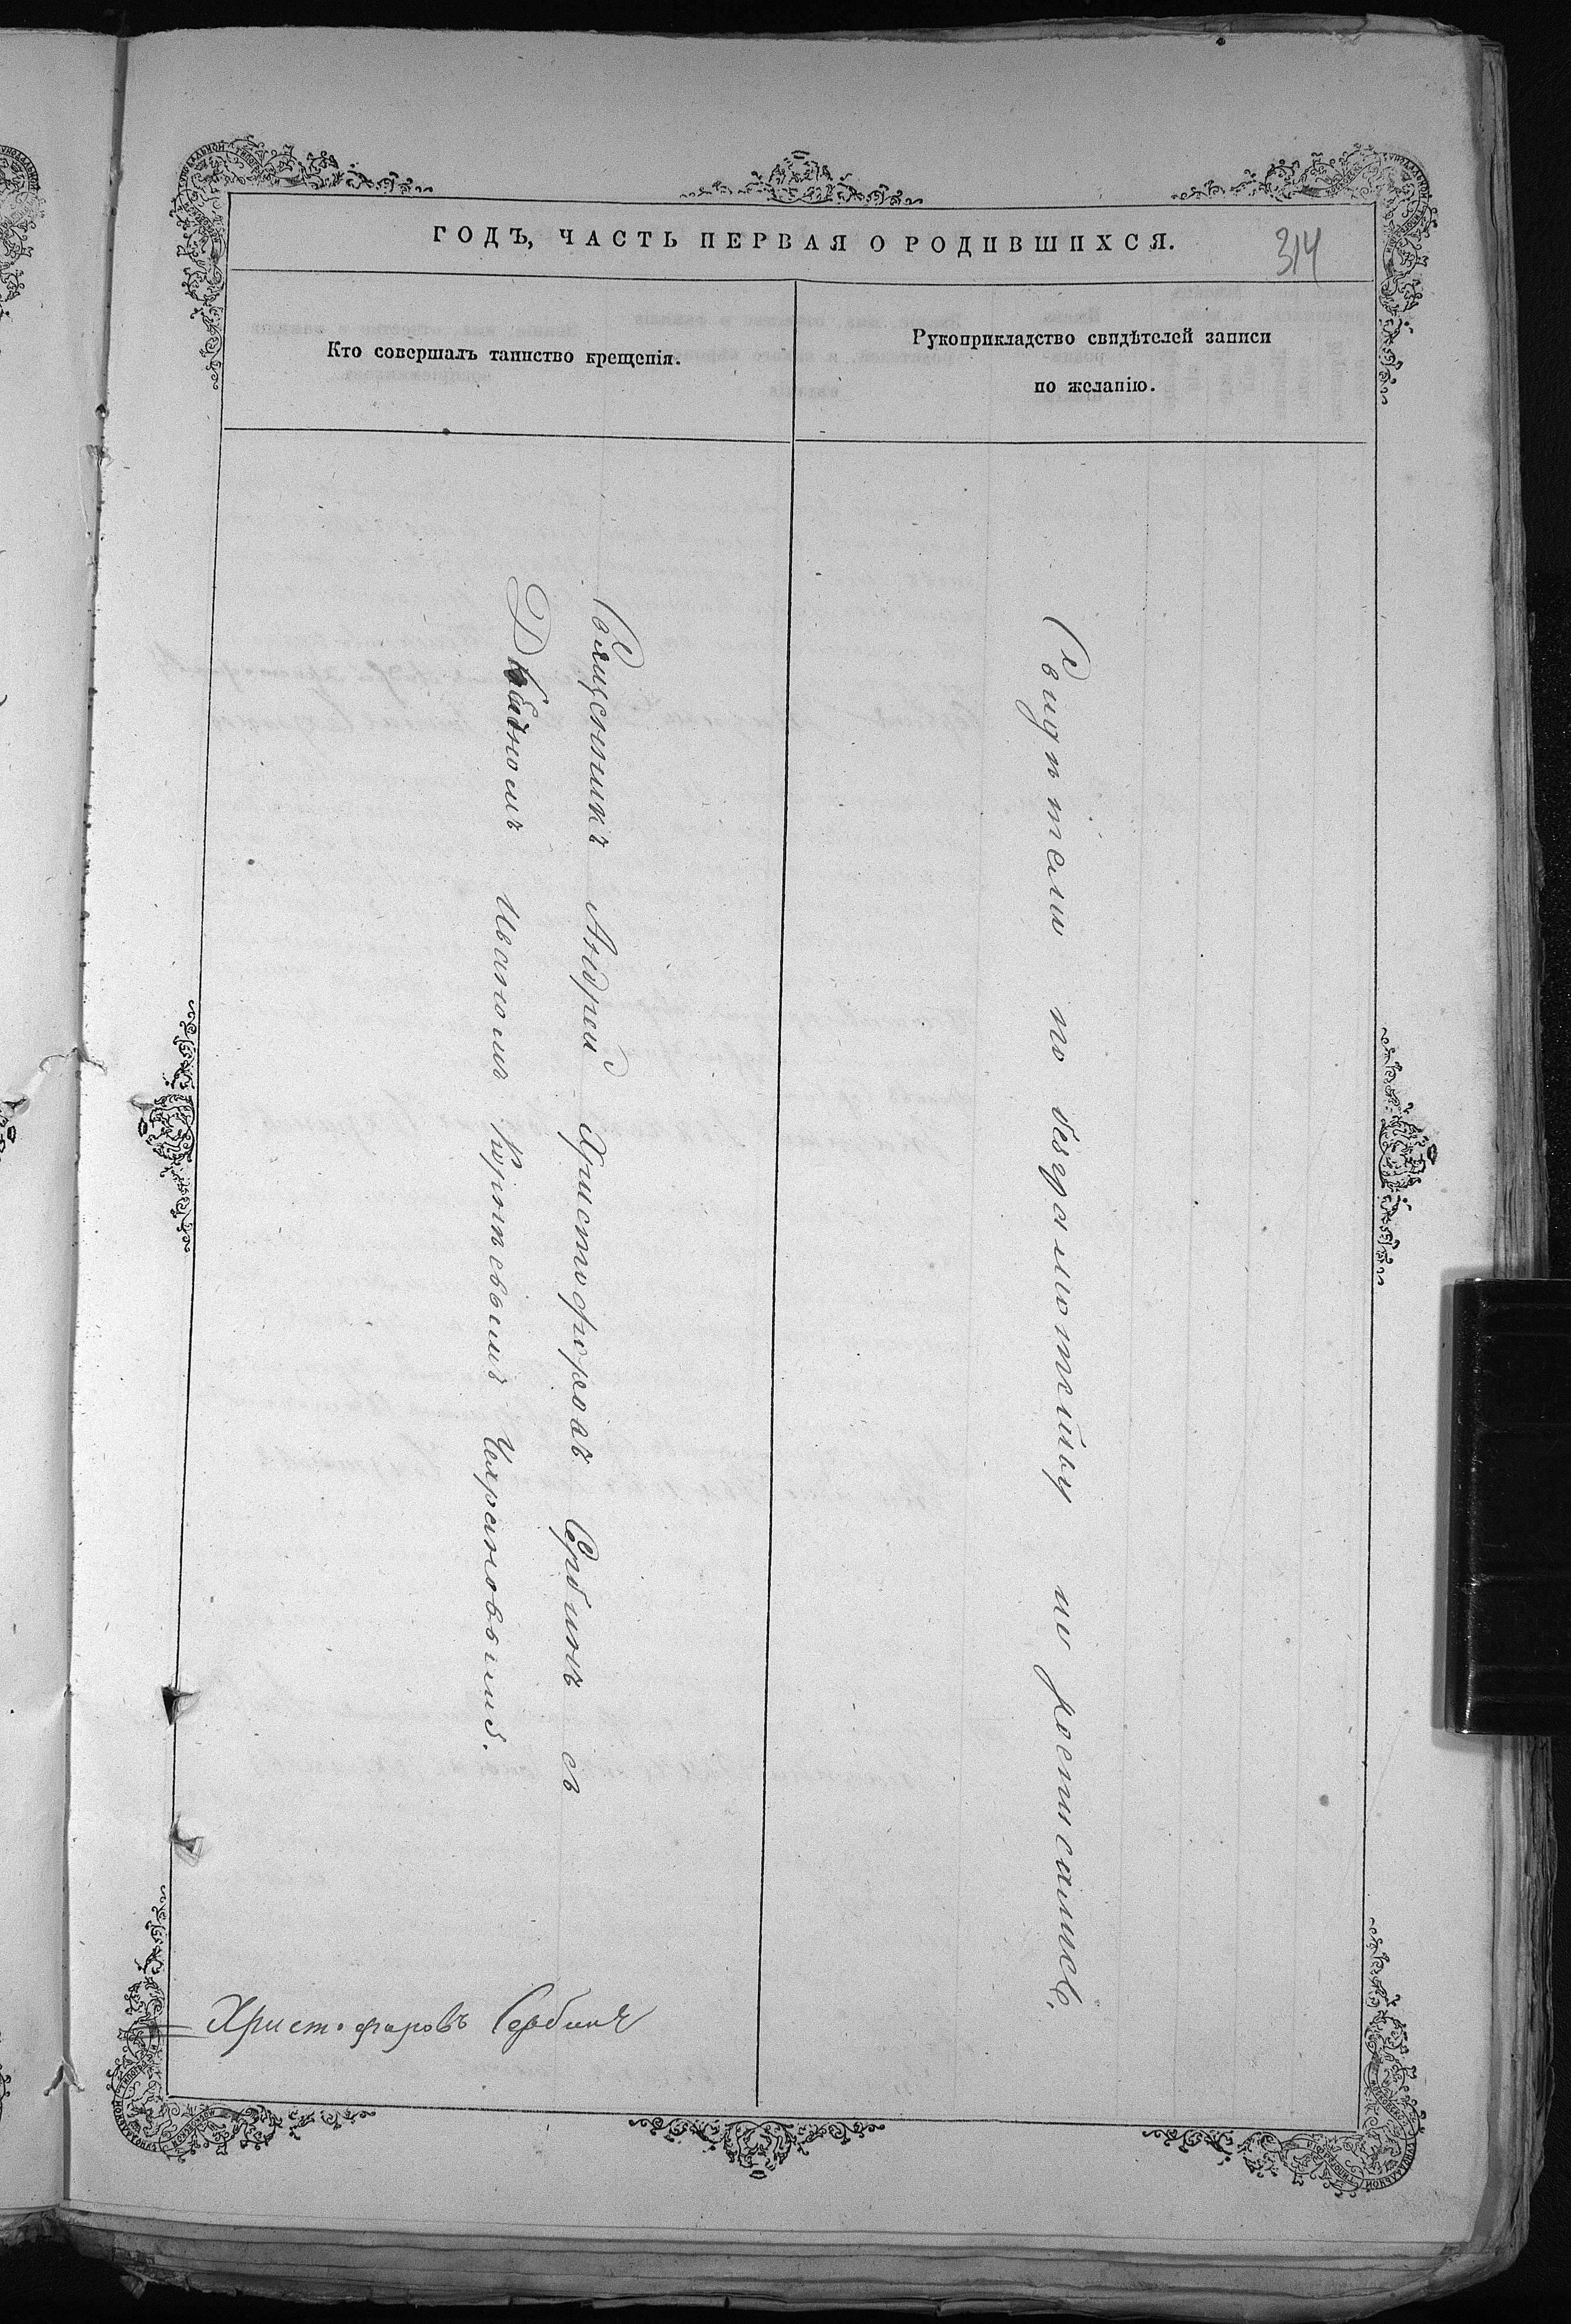 ГОДЪ, ЧАСТЬ ПЕРВАЯ О РОДИВШИХСЯ.
314
Кто совершалъ таинство крещенія.
Рукоприкладство свидѣтелей записи
по желанію.
Священникъ Андрей Христофоровъ Сербинъ съ
Дьякономъ Иваномъ
Свидѣтели по безграмотству не росписались.
Христофоровъ Сербинъ